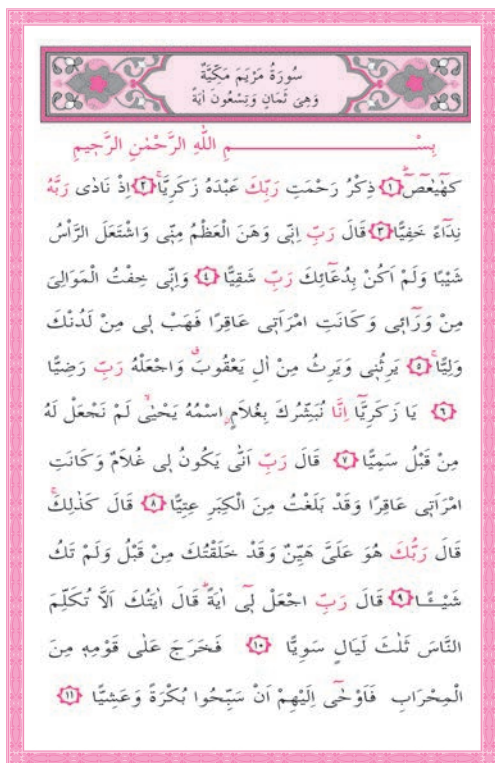 سُورَةُ مَرْيَمَ مَكِّيَّةٌ
وَهِىَ ثَمَانٍ وَتِسْعُونَ اٰيَةً
بِسْــــــــــــــــــمِ اللّٰهِ الرَّحْمٰنِ الرَّحِيمِ
كٓهٰيٰعٓصٓ ﴿١﴾ ذِكْرُ رَحْمَتِ رَبِّكَ عَبْدَهُ زَكَرِيَّاۚ ﴿٢﴾ اِذْ نَادٰى رَبَّهُ
نِدَٓاءً خَفِيًّا ﴿٣﴾ قَالَ رَبِّ اِنّٖى وَهَنَ الْعَظْمُ مِنّٖى وَاشْتَعَلَ الرَّأْسُ
شَيْبًا وَلَمْ اَكُنْ بِدُعَٓائِكَ رَبِّ شَقِيًّا ﴿٤﴾ وَاِنّٖى خِفْتُ الْمَوَالِىَ
مِنْ وَرَٓائٖى وَكَانَتِ امْرَاَتٖى عَاقِرًا فَهَبْ لٖى مِنْ لَدُنْكَ
وَلِيًّاۙ ﴿٥﴾ يَرِثُنٖى وَيَرِثُ مِنْ اٰلِ يَعْقُوبَۗ وَاجْعَلْهُ رَبِّ رَضِيًّا
﴿٦﴾ يَا زَكَرِيَّٓا اِنَّا نُبَشِّرُكَ بِغُلَامٍۨ اسْمُهُ يَحْيٰىۙ لَمْ نَجْعَلْ لَهُ
مِنْ قَبْلُ سَمِيًّا ﴿٧﴾ قَالَ رَبِّ اَنّٰى يَكُونُ لٖى غُلَامٌ وَكَانَتِ
امْرَاَتٖى عَاقِرًا وَقَدْ بَلَغْتُ مِنَ الْكِبَرِ عِتِيًّا ﴿٨﴾ قَالَ كَذٰلِكَۚ
قَالَ رَبُّكَ هُوَ عَلَىَّ هَيِّنٌ وَقَدْ خَلَقْتُكَ مِنْ قَبْلُ وَلَمْ تَكُ
شَيْـًٔا ﴿٩﴾ قَالَ رَبِّ اجْعَلْ لٖٓى اٰيَةًۜ قَالَ اٰيَتُكَ اَلَّا تُكَلِّمَ
النَّاسَ ثَلٰثَ لَيَالٍ سَوِيًّا ﴿١٠﴾ فَخَرَجَ عَلٰى قَوْمِهٖ مِنَ
الْمِحْرَابِ فَاَوْحٰٓى اِلَيْهِمْ اَنْ سَبِّحُوا بُكْرَةً وَعَشِيًّا ﴿١١﴾